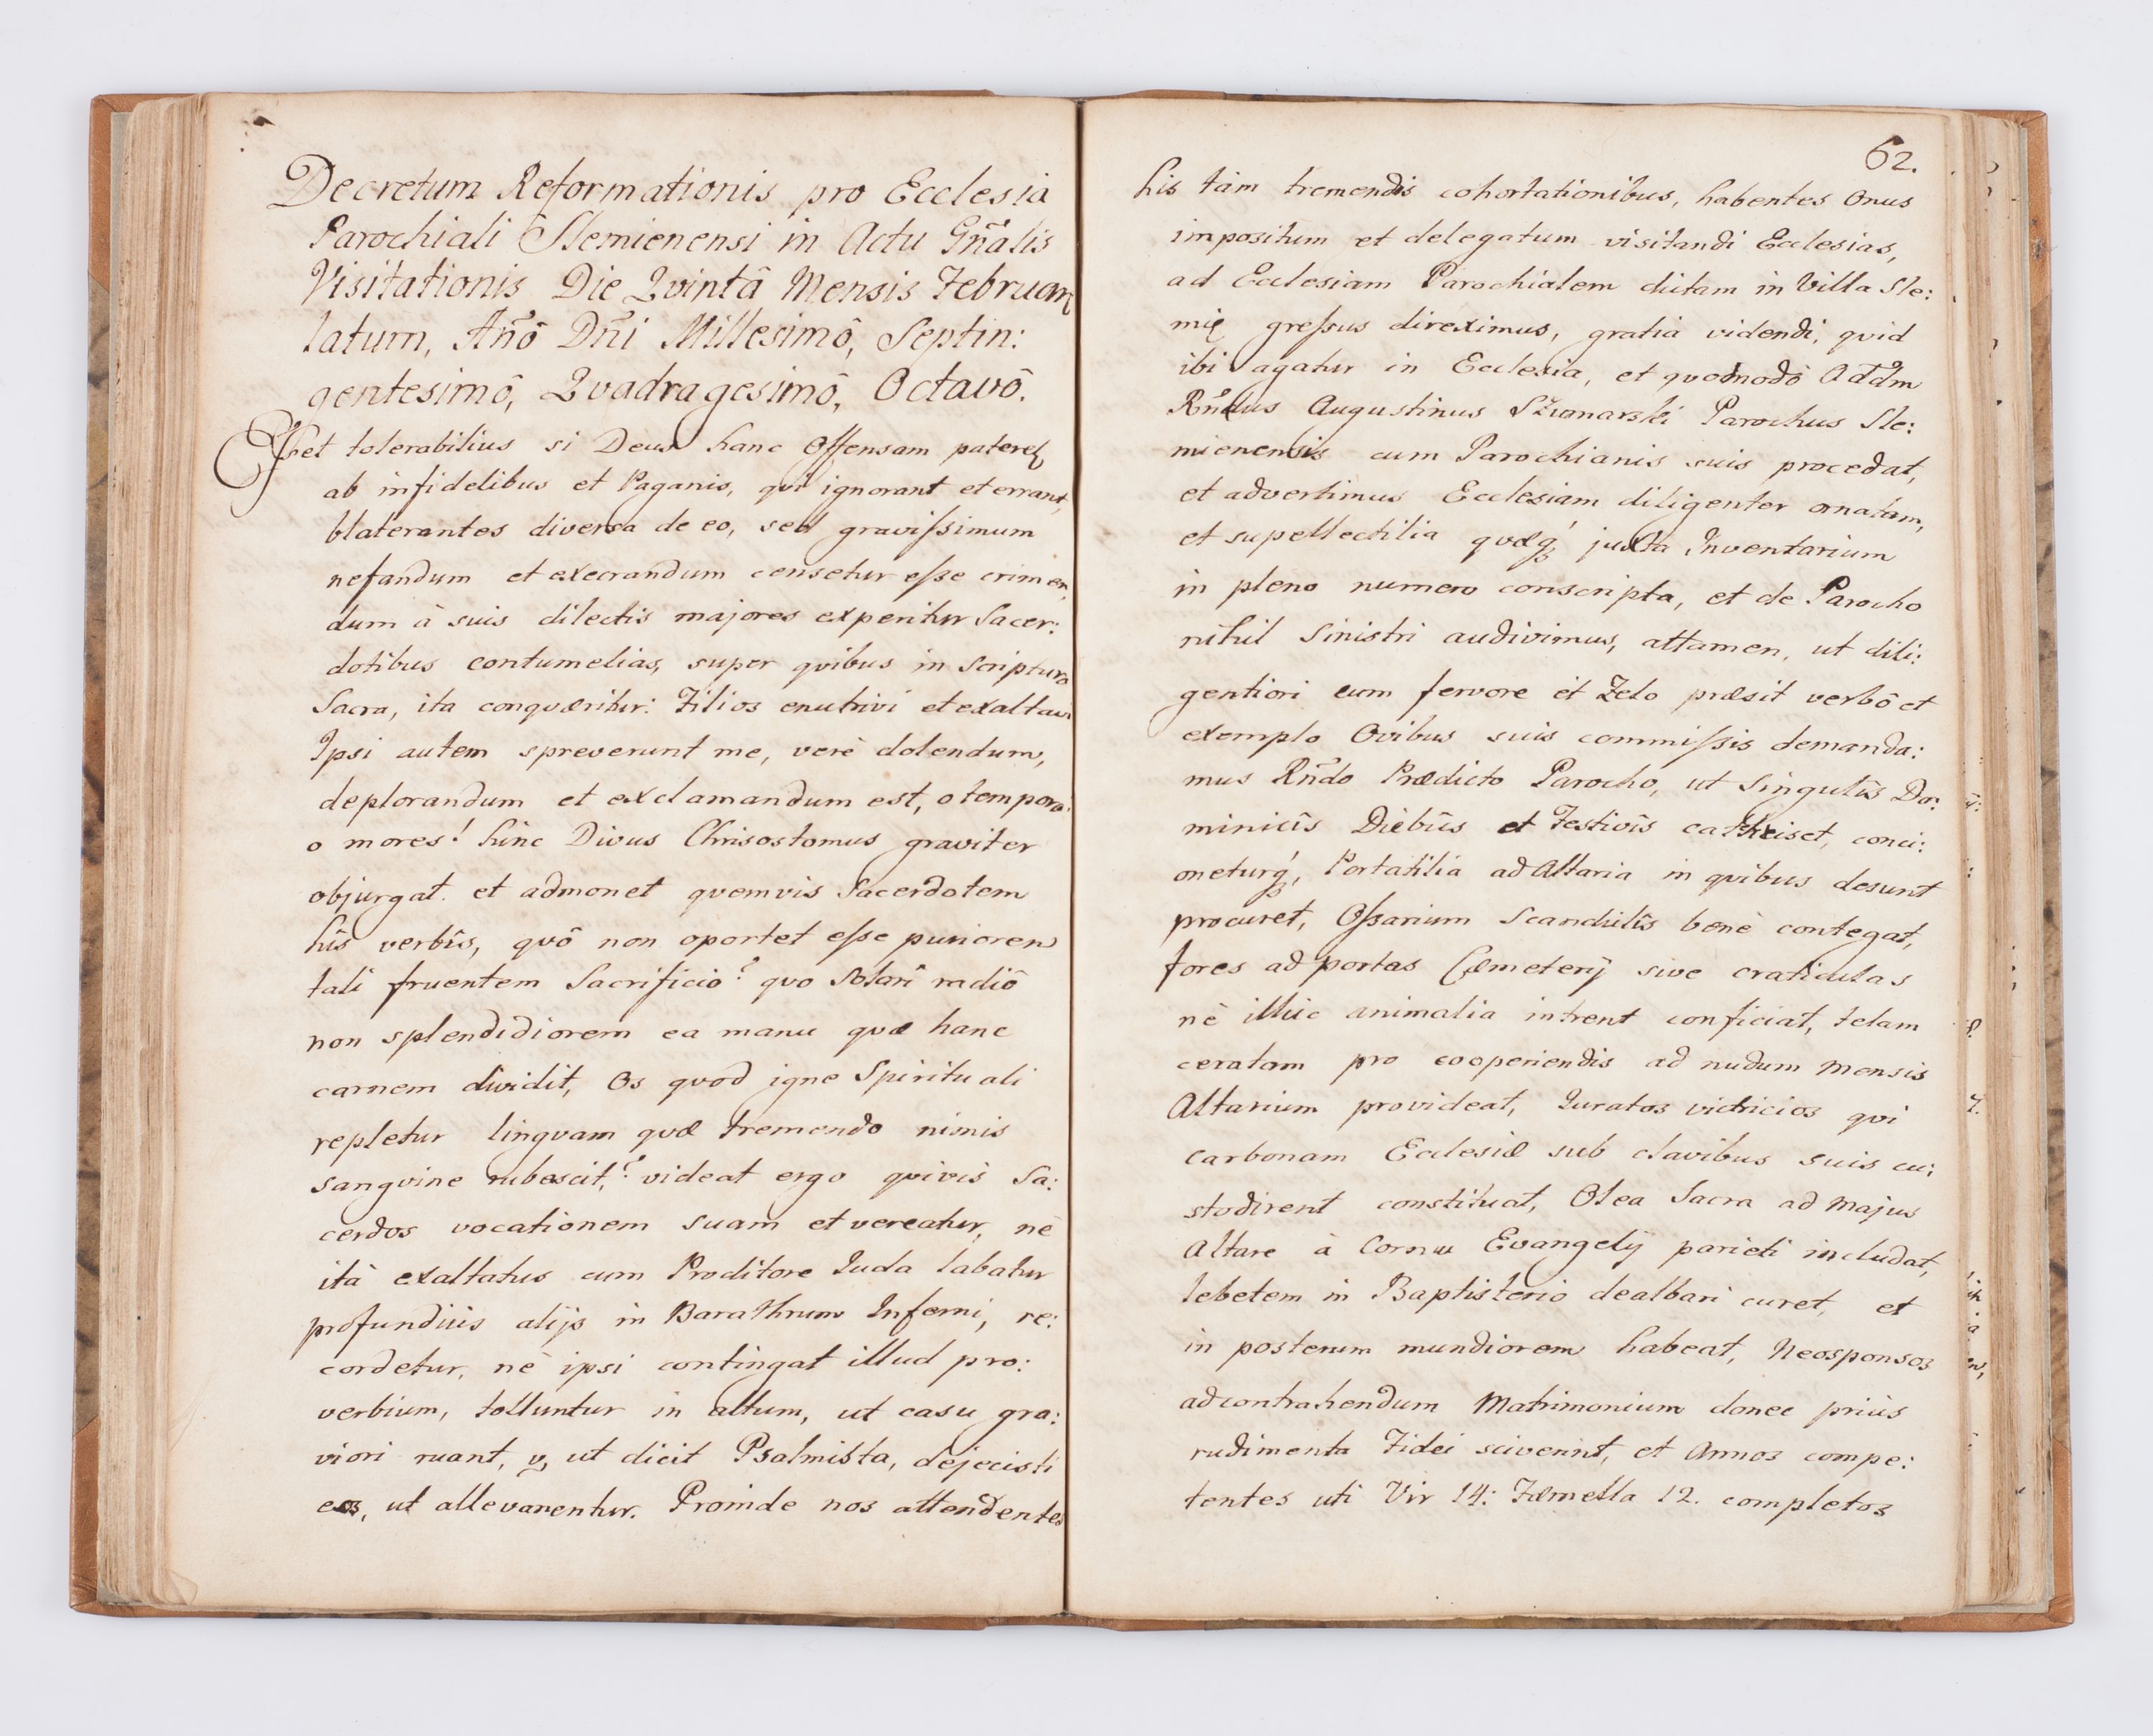 Decretum Reformationis pro Ecclesia
Parochiali Slemienensi in Actu Gñalis
Visitationis Die Qvintâ Mensis Februarij
latum, Añô Dñi Millesimô, Septin:
gentesimô, Qvadragesimô, Octavô.
Eſset tolerabilius si Deus hanc Offensam pateretur
ab infidelibus et Paganis, qvi ignorant et errant,
blaterantes diversa de eo, sed graviſsimum
nefandum et execrandum censetur eſse crimen,
dum à suis dilectis majores experitur Sacer:
dotibus contumelias, super qvibus in Scriptura
Sacra, ita conqværitur: Filios enutrivi et exaltavi
Ipsi autem spreverunt me, verè dolendum,
deplorandum et exclamandum est, o tempora
o mores! hinc Divus Chrisostomus graviter
objurgat et admonet qvemvis Sacerdotem
hîs verbîs, qvô non oportet eſse puriorem
tali fruentem Sacrificiô? qvo Solari radiô
non splendidiorem ea manu qvæ hanc
carnem dividit, Os qvod igne Spirituali
repletur lingvam qvæ tremendo nimis
sangvine rubescit,? videat ergo qvivis Sa:
cerdos vocationem suam et vereatur, nè
ità exaltatus cum Proditore Iuda labatur
profundiùs alijs in Barathrum Inferni, re:
cordetur, nè ipsi contingat illud pro:
verbium, tolluntur in altum, ut casu gra:
viori ruant, ut dicit Psalmista, dejecisti
eos, ut allevarentur. Proinde nos attendentes
62.
his tàm tremendis cohortationibus, habentes Onus
impositum et delegatum visitandi Ecclesias,
ad Ecclesiam Parochialem dictam in Villa Sle:
mię greſsus direximus, gratia videndi, qvid
ibi agatur in Ecclesia, et qvomodò Addm
Rñdus Augustinus Parochus Sle:
mienensis cum Parochianis suis procedat,
et advertimus Ecclesiam diligenter ornatam,
et supellectilia qvæq́ juxta Inventarium
in pleno numero conscripta, et de Parocho
nihil Sinistri audivimus, attamen, ut dili:
gentiori cum fervore et Zelo præsit verbô et
exemplo Ovibus suis commiſsis demanda:
mus Rñdo Prædicto Parocho, ut Singulîs Do:
minicîs Diebûs et Festivîs catheiset, conci:
oneturq́, Portatilia ad Altaria in qvibus desunt
procuret, Oſsarium Scandulîs benè contegat,
fores ad portas Cæmeterij sive craticulas
nè illùc animalia intrent conficiat, telam
ceratam pro cooperiendis ad nudum Mensis
Altarium provideat, Iuratos victricios qvi
carbonam Ecclesiæ sub clavibus suis cu:
stodirent constituat, Olea Sacra ad Majus
Altare à Cornu Evangelij parieti includat,
lebetem in Baptisterio dealbari curet, et
in posterum mundiorem habeat, Neosponsos
ad contrahendum Matrimonium donec priùs
rudimenta Fidei sciverint, et Annos compe:
tentes uti Vir 14: Fæmella 12. completos